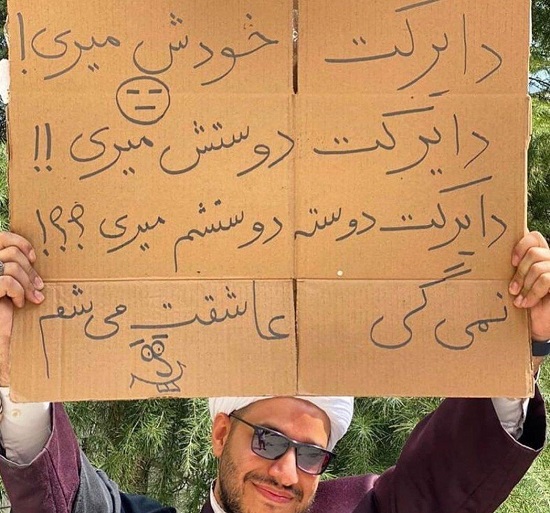 دایرکت خودش میری!
دایرکت دوستش میری !!
دایرکت دوسته دوستشم میری ؟؟؟!
نمی گی عاشقت می شم